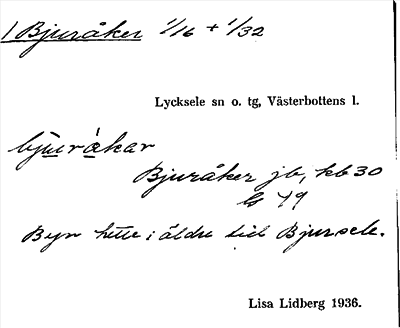 1 Bjuråker 1/16 + 1/32
Lycksele sn o. tg, Västerbottens l.
bjuråkar
Bjuråker jb, kb 30
79
Byn hette i äldre tid Bjursele.
Lisa Lidberg 1936.